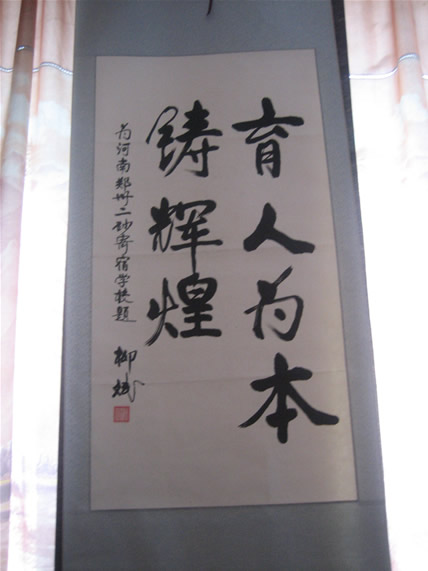 育人为本
铸辉煌
为河南郑州二砂寄宿学校题
柳斌